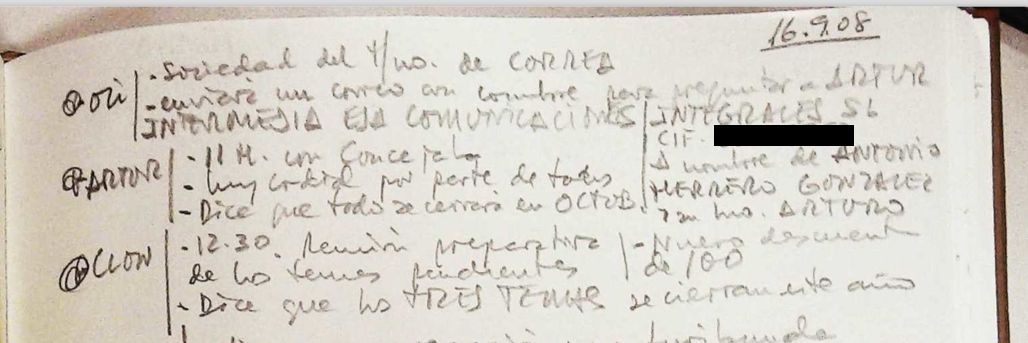 16.9.08
⊕ OLI | - Sociedad del y/no. de CORREA
- enviará un correo con nombre para preguntar a ARTUR
INTERMEDIA EJA COMUNICACIONES | INTEGRALES SL
CIF.
A nombre de ANTONIO
HERRERO GONZALEZ
y su hno. ARTURO
⊕ ARTUR | - 11 H. con Concejala
- Muy cordial por parte de todos
- Dice que todo se cerrará en OCTUB.
⊕ CLOW | - 12.30. Reunión preparatoria
de los temas pendientes
- Dice que los TRES TEMAS se cierran este año
- Nuevo descuent
de 100